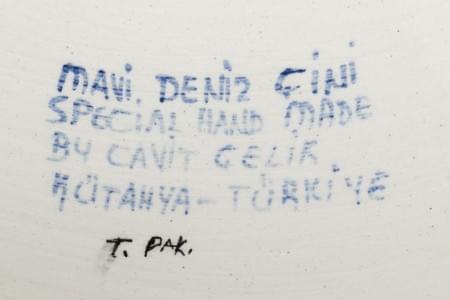 MAVİ DENİZ ÇİNİ
SPECİAL HAND MADE
BY CAVİT ÇELİK
KÜTAHYA - TÜRKİYE
T. PAK.